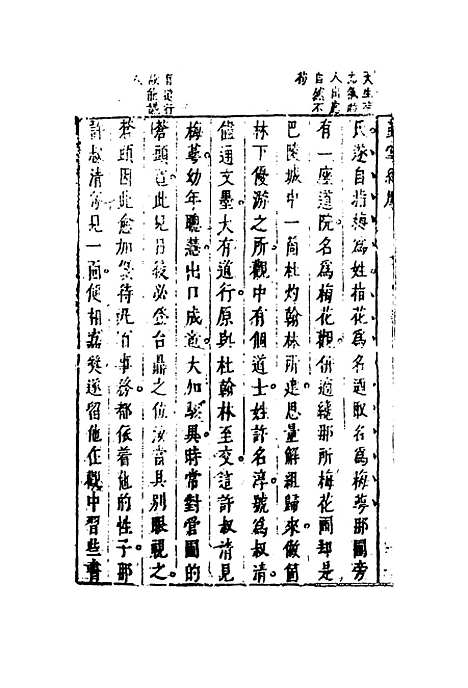 天生
人
自然不
有道行
故能識
氏遂自指梅為姓指花為名遂取名為梅夢那園旁
有一座道院名為梅花觀併這繞那所梅花園却是
巴陵城中一箇杜灼翰林所建思量解組歸來做箇
林下優游之所觀中有個道士姓許名淳號為叔清
儘通文墨大有道行原與杜翰林至交這許叔清見
梅萼幼年聰慧出口成道大加驚異時常對管園的
蒼頭道此兒日後必登台鼎之位汝當具別眼視之
蒼頭因此愈加優待凡百事務都依着他的性子那
許叔清每見一面便相嘉獎遂留他在觀中習些書